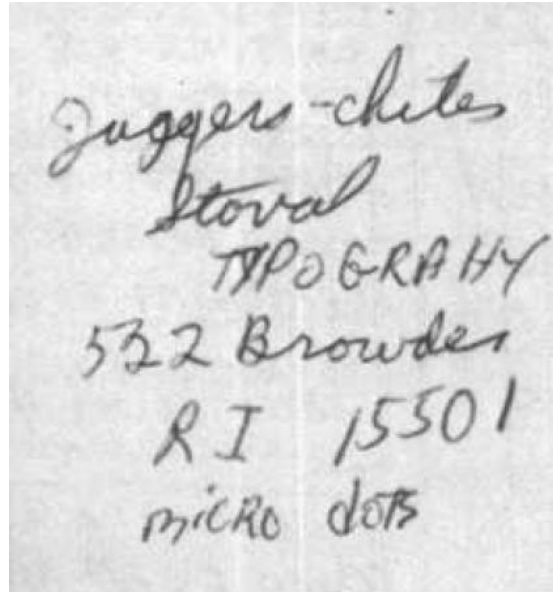 Jaggers-chiles
Stoval
TYPOGRAHY
522 Browder
RI 15501
micro dots